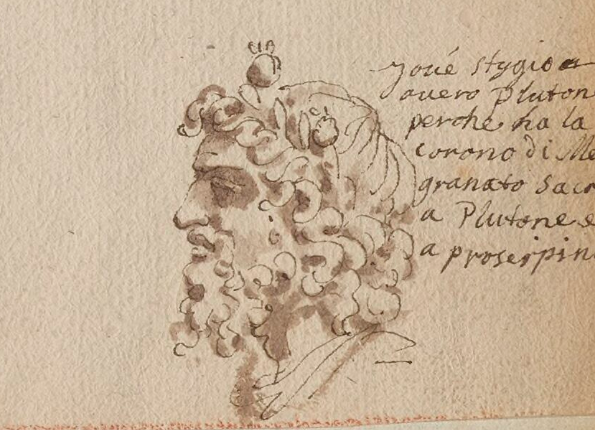 Joué stygio a
auero Pluton
perche ha la
corono di Me
granato Sacr
a Plutone e
a proserpin